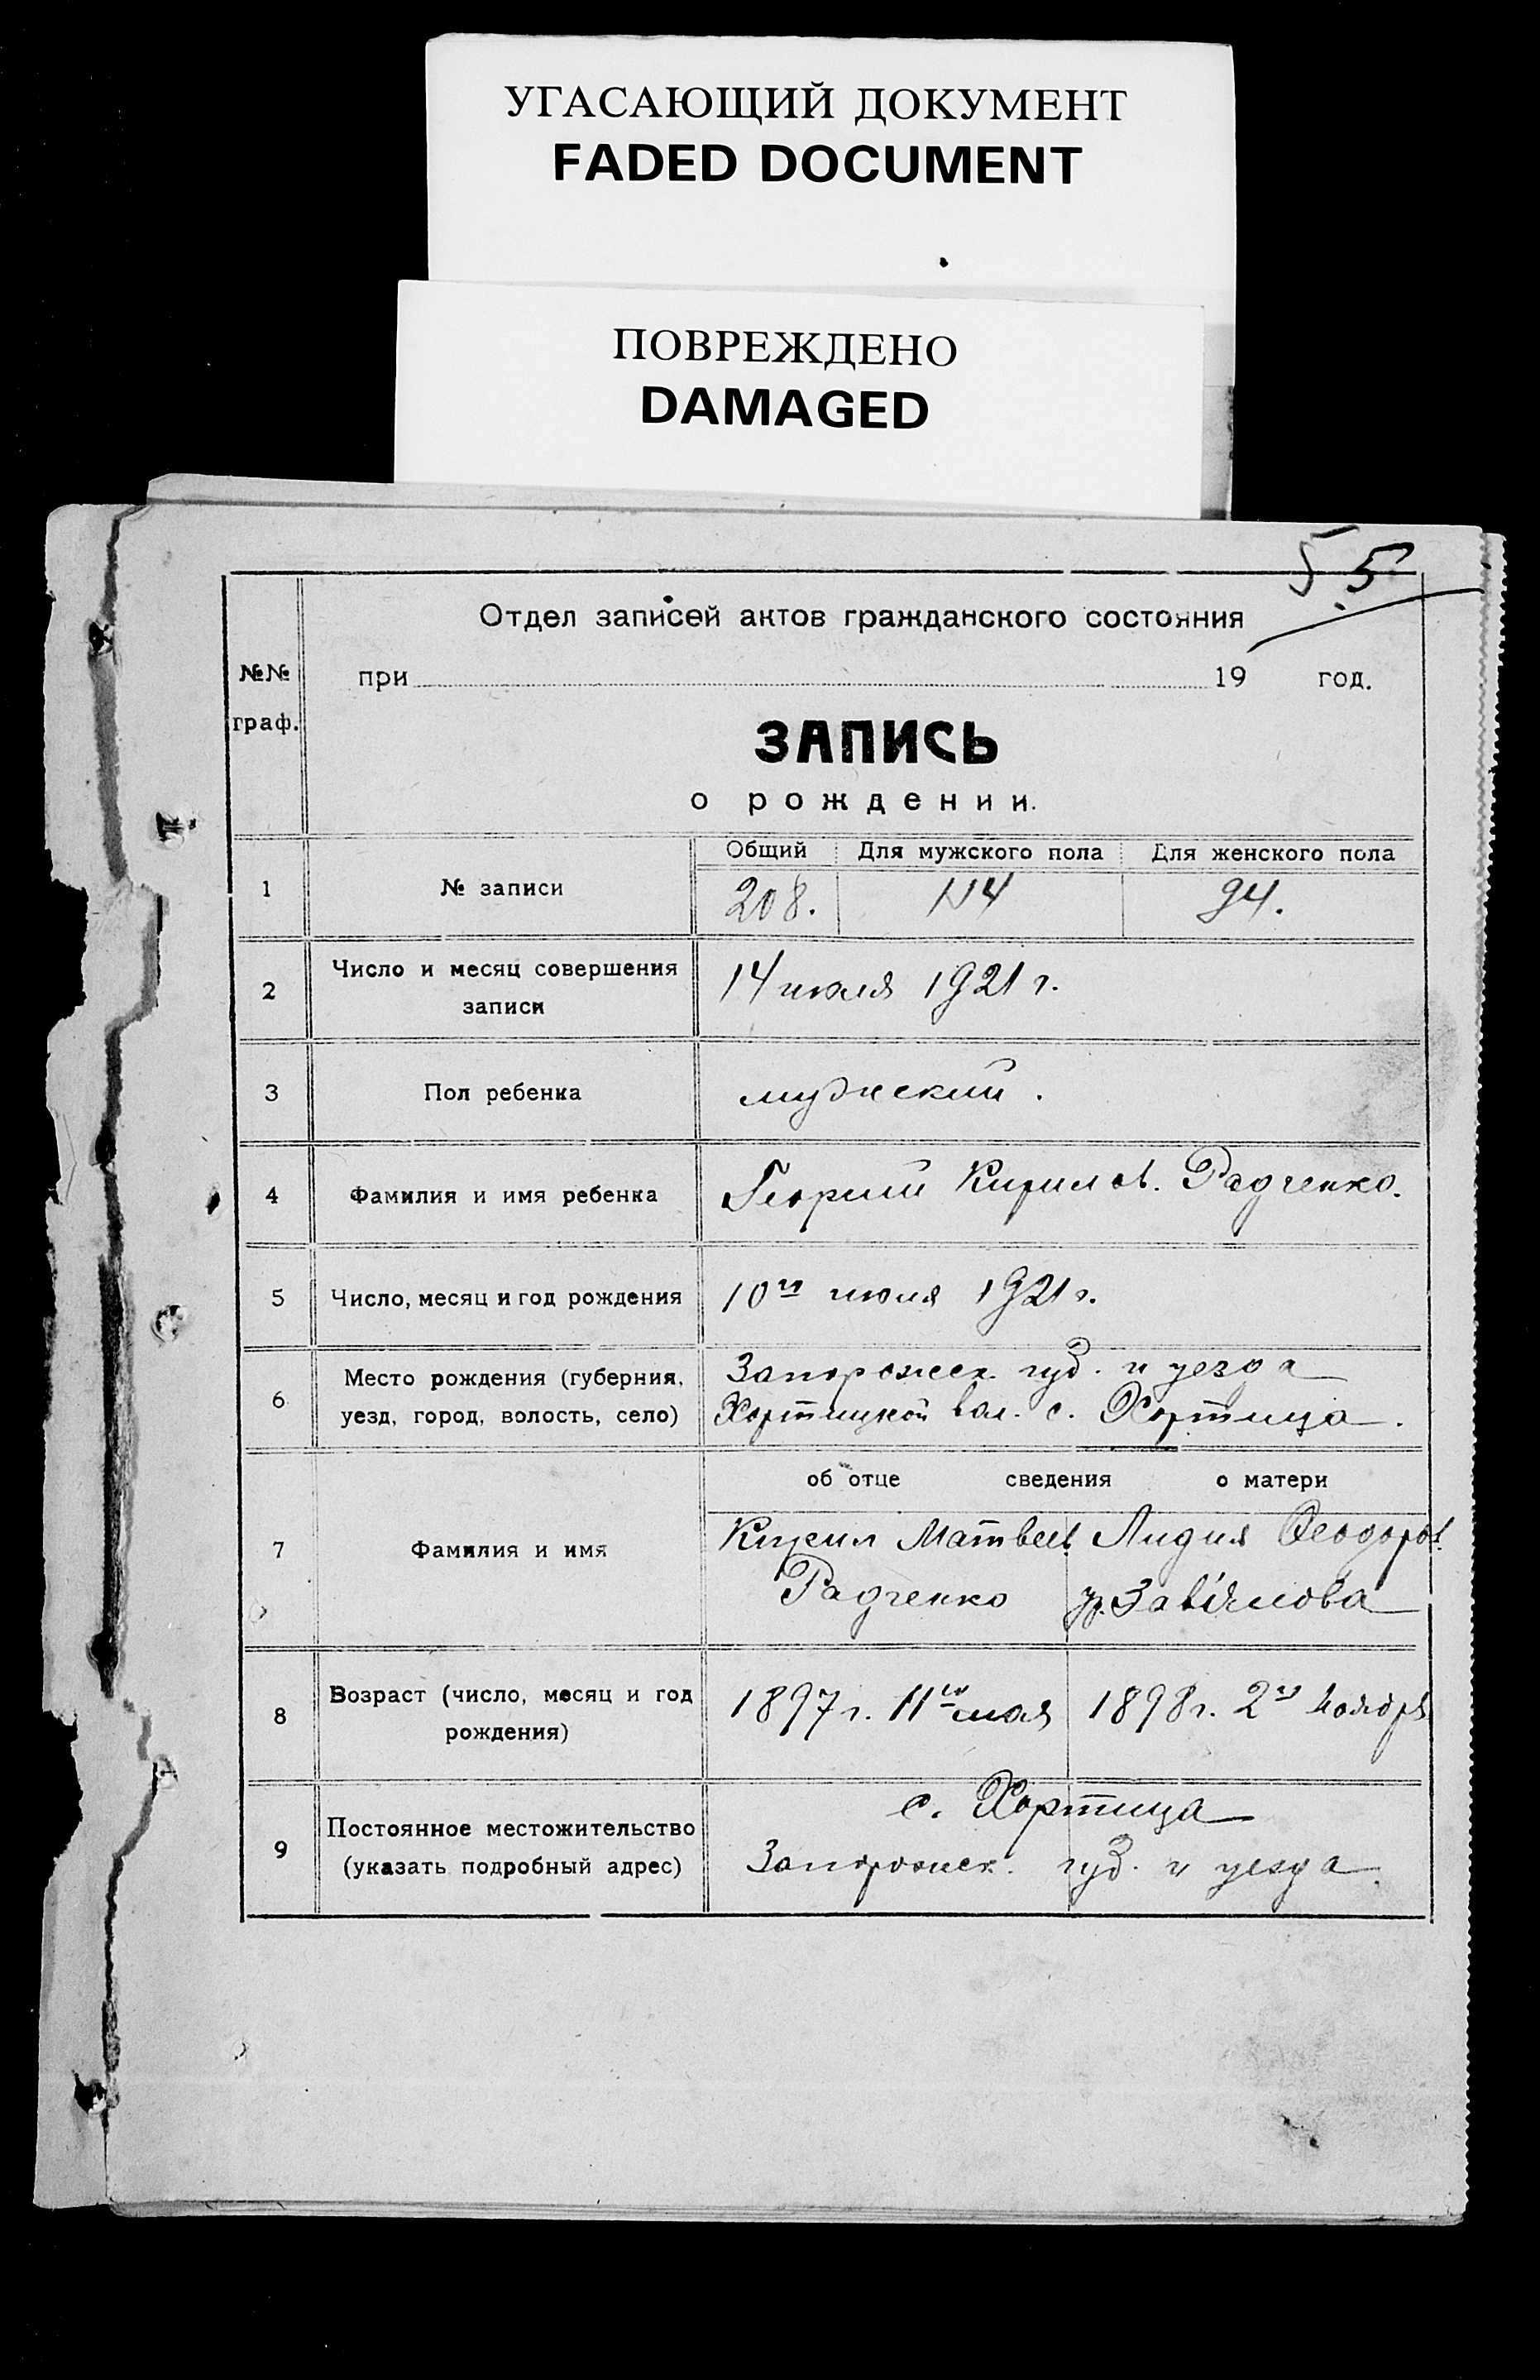 УГАСАЮЩИЙ ДОКУМЕНТ
FADED DOCUMENT
ПОВРЕЖДЕНО
DAMAGED
55
Отдел записей актов гражданского состояния
№№ граф.
при 19 год.
ЗАПИСЬ
о рождении.
Общий Для мужского пола Для женского пола
1 № записи 208. 114 94.
2 Число и месяц совершения записи 14 июля 1921 г.
3 Пол ребенка мужский.
4 Фамилия и имя ребенка Георгий Кирилов. Радченко.
5 Число, месяц и год рождения 10го июля 1921 г.
6 Место рождения (губерния, Запорожск. губ. и уезда
уезд, город, волость, село) Хортицкой вол. с. Хортица.
об отце сведения о матери
7 Фамилия и имя Кирил Матвеев. Лидия Феодоров.
Радченко ур. Завiялова
8 Возраст (число, месяц и год 1897 г. 11го мая 1898 г. 2го ноября
рождения)
с. Хортица
9 Постоянное местожительство
(указать подробный адрес) Запорожск. губ. и уезда.